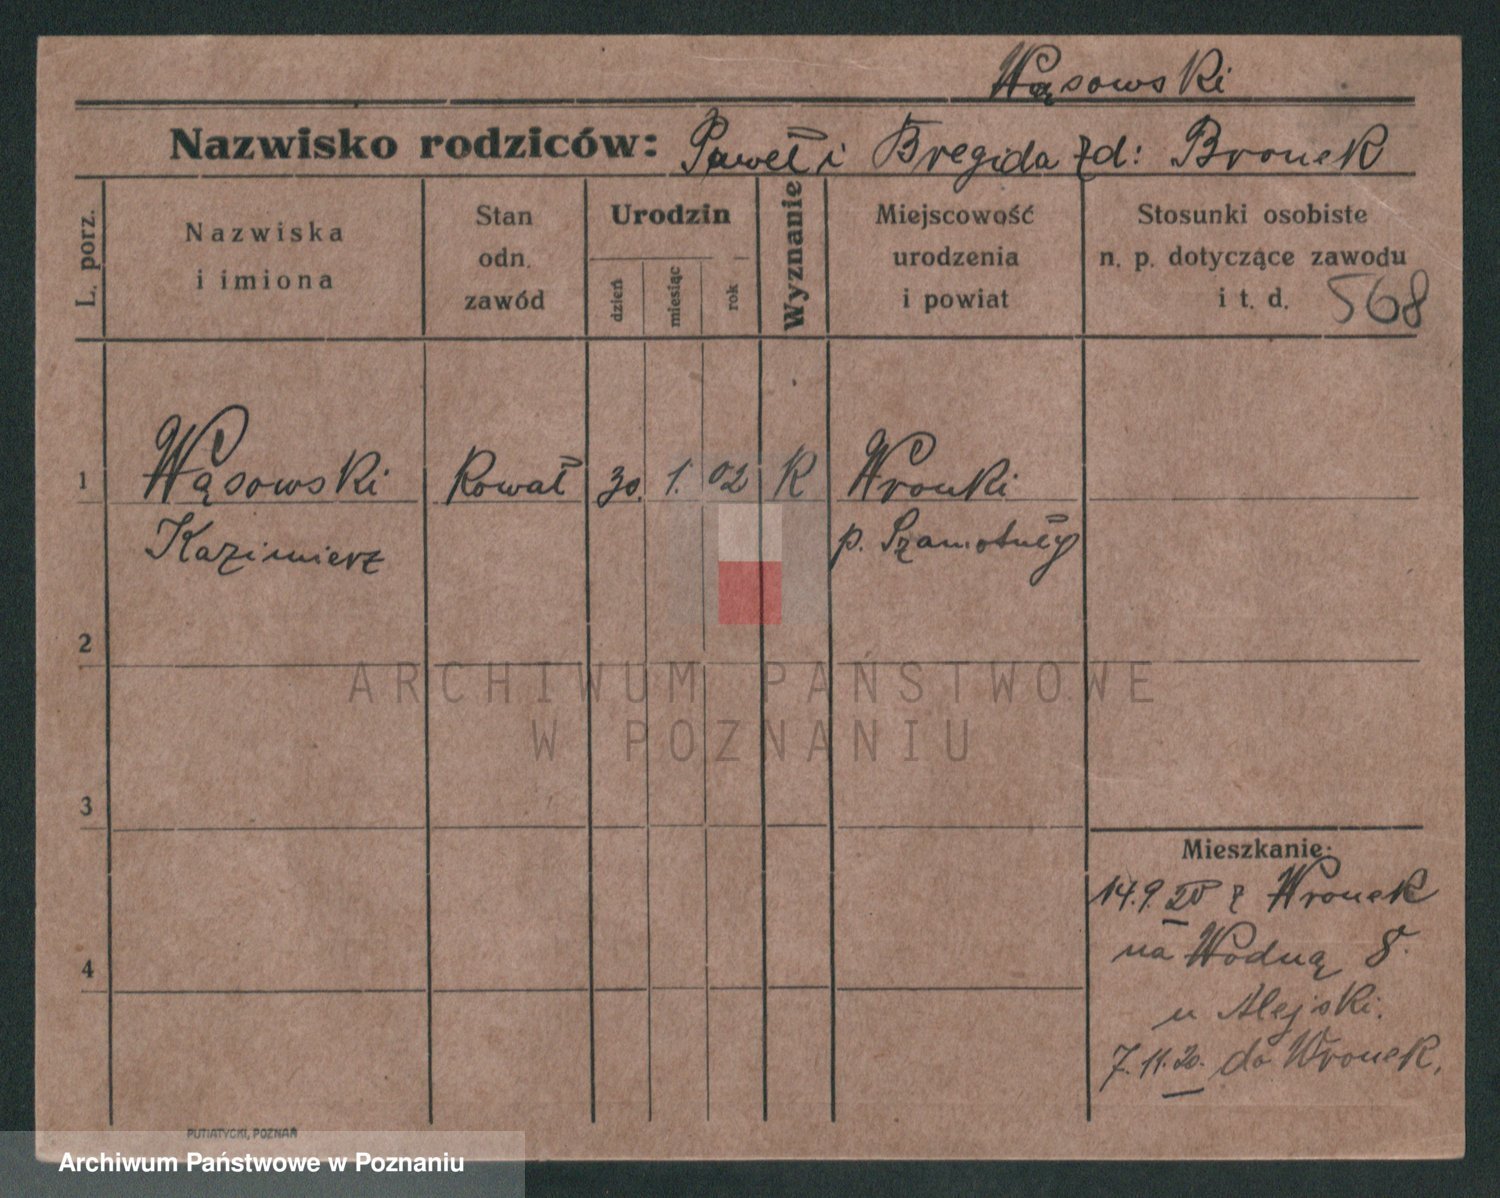 Wąsowski
Nazwisko rodziców: Paweł i Bregida zd: Bronek
L. porz.
Nazwiska
i imiona
Stan
odn.
zawód
Urodzin
dzień
miesiąc
rok
Wyznanie
Miejscowość
urodzenia
i powiat
Stosunki osobiste
n. p. dotyczące zawodu
i t. d. 568
1 Wąsowski Kowal 30. 1. 02 K Wronki
Kazimierz p. Szamotuły
2
ARCHIWUM PAŃSTWOWE
W POZNANIU
3
Mieszkanie:
14.9 20 z Wronek
na Wodną 8.
u Alejski.
7.11.20. do Wronek.
4
PUTIATYCKI, POZNAŃ
Archiwum Państwowe w Poznaniu